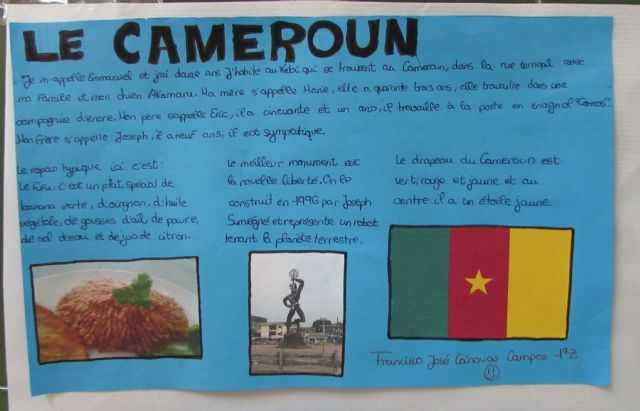 LE CAMEROUN
"Je m'appelle Emmanuel et j'ai douze ans J'habite au Kebi qui se trouvent au Cameroun, dans la rue temgal avec
ma famille et mon chien Akamaru. Ma mère s'appelle Marie, elle a quarante trois ans, elle travaille dans une
compagnie d'enere. Mon père s'appelle Eric, il a cincuante et un ans, il travaille à la poste en enagnol "Correos".
Mon frère s'appelle Joseph, il a neuf ans, il est sympatique.
Le repas typique ici c'est:
Le Fufu c'est un plat spécial de
banana verte, d'oignon, d'huile
végétale, de gousses d'ail, de poivre,
de sel d'eau et de jus de citron.
Le meilleur monument est
la nouvelle liberté. On le
construit en 1996 par Joseph
Sumegné et représente un robot
tenant la planète terrestre.
Le drapeau du Cameroun est
vert, rouge et jaune et au
centre il a un étoile jaune.
Francisco José Cánovas Campos 1ºZ